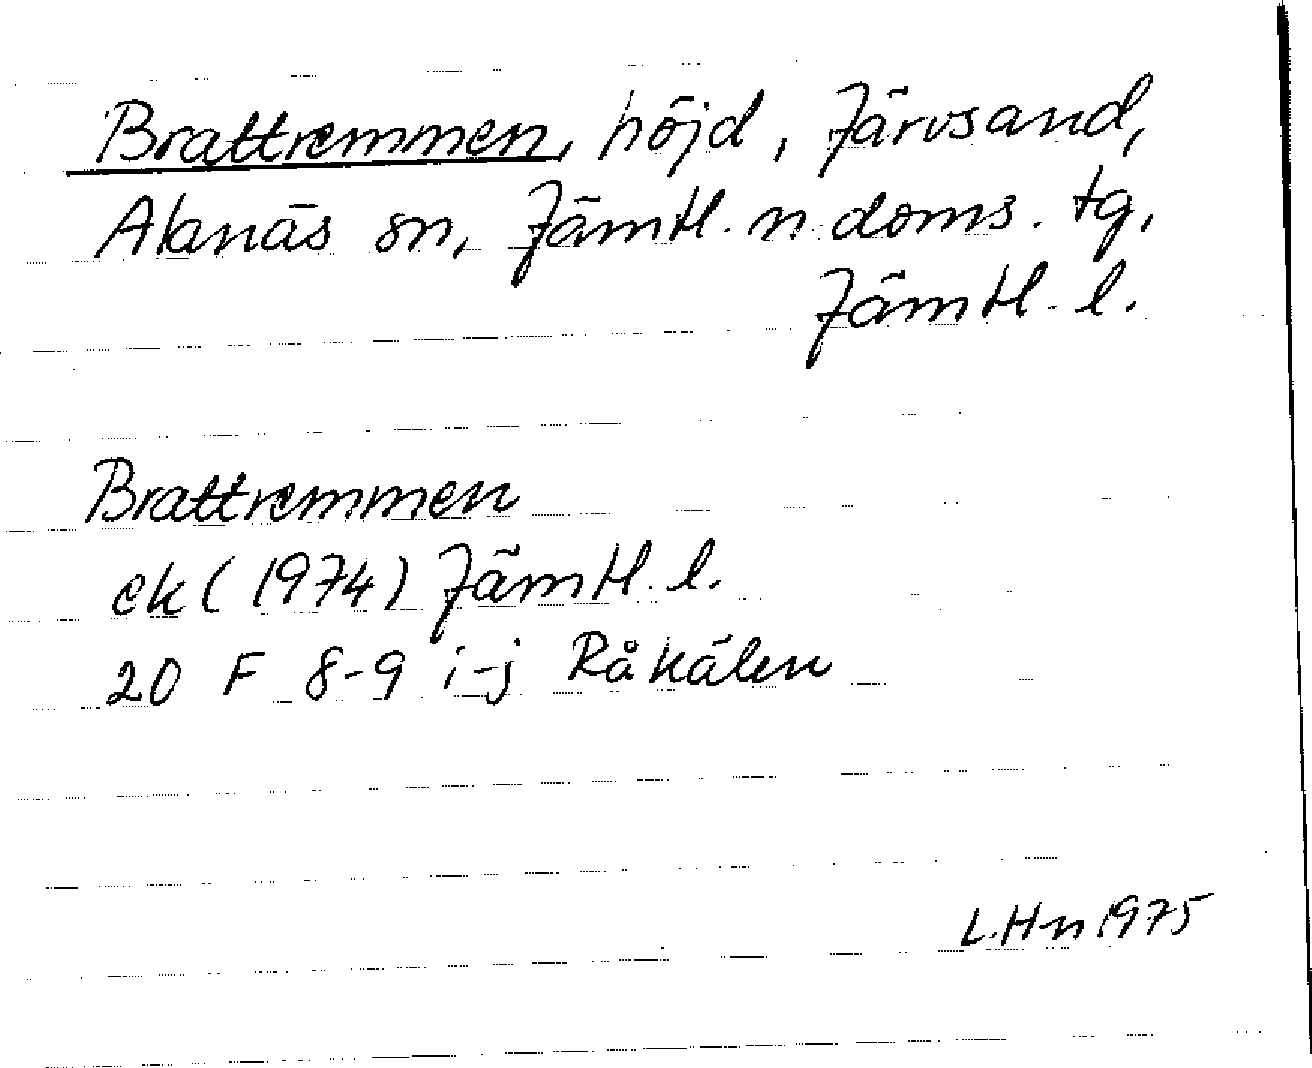 Brattremmen, höjd, Järvsand,
Alanäs sn, Jämtl. n. doms. tg,
Jämtl. l.
Brattremmen
ek (1974) Jämtl. l.
20 F 8-9 i-j Råkälen
L.Hn 1975